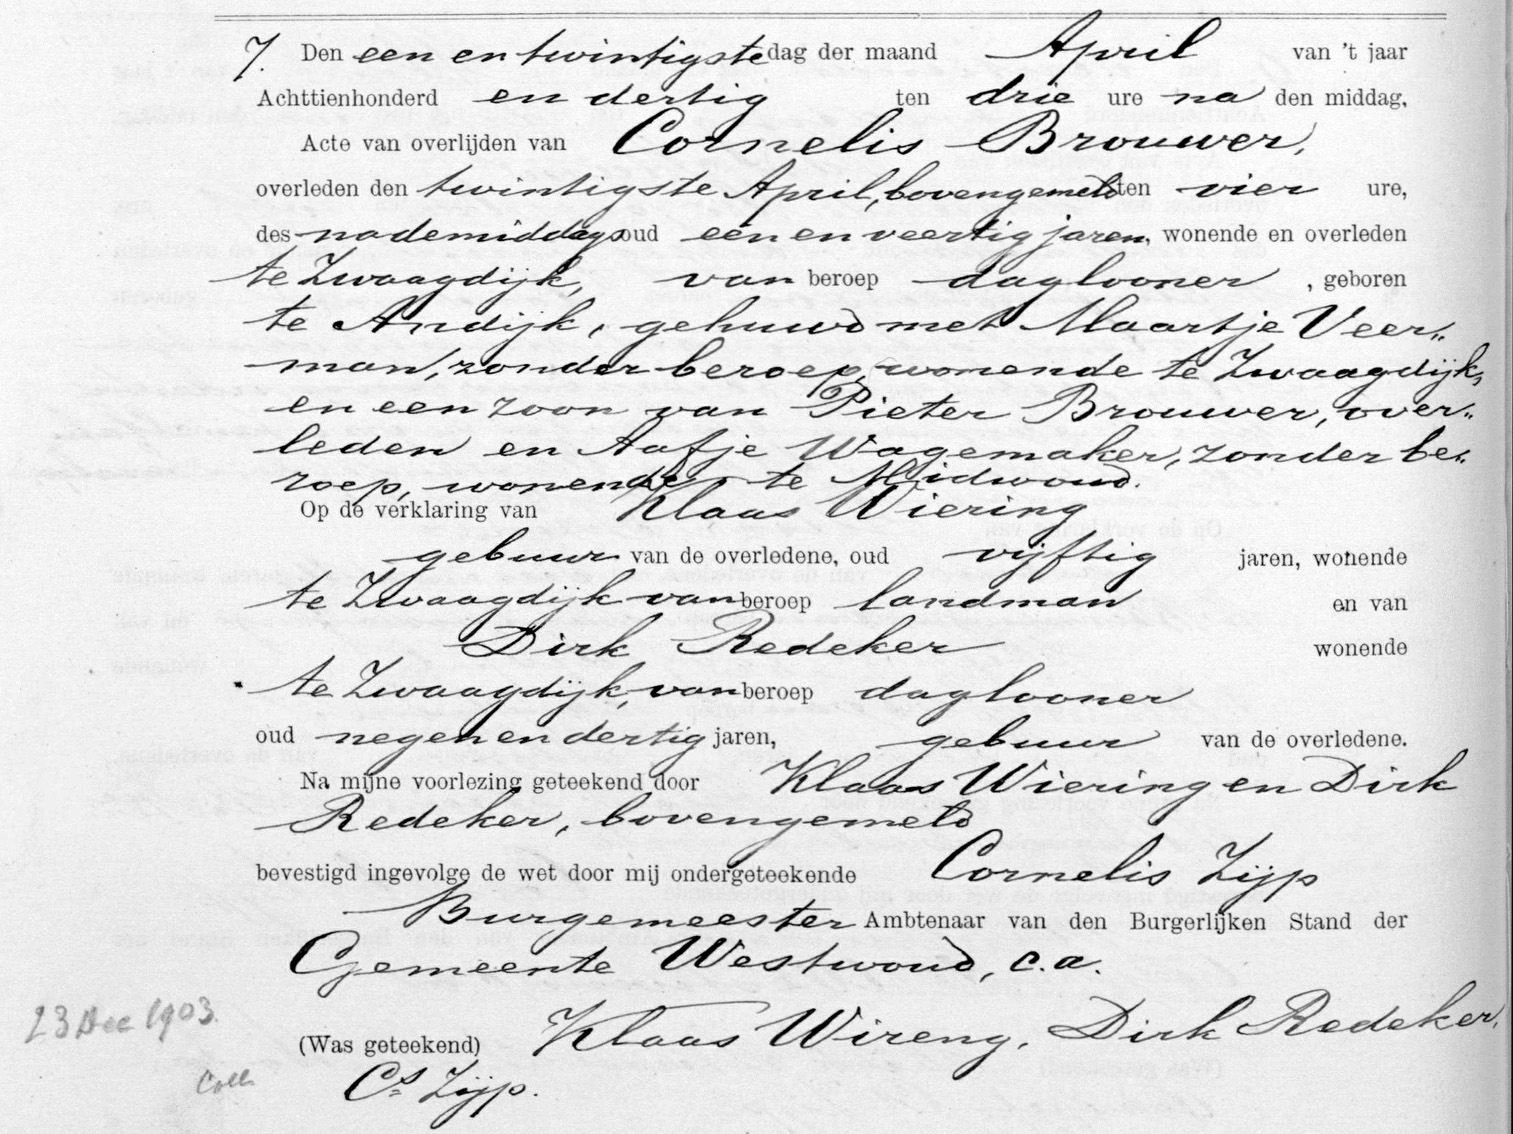 7. Den een en twintigste dag der maand April van 't jaar
Achttienhonderd en dertig ten drie ure na den middag,
Acte van overlijden van Cornelis Brouwer,
overleden den twintigste April, bovengemeld ten vier ure,
des nademiddags oud een en veertig jaren, wonende en overleden
te Zwaagdijk, van beroep daglooner, geboren
te Andijk, gehuwd met Maartje Veer„
man, zonder beroep, wonende te Zwaagdijk,
en een zoon van Pieter Brouwer, over„
leden en Aafje Wagemaker, zonder be„
roep, wonende te Midwoud.
Op de verklaring van Klaas Wiering
gebuur van de overledene, oud vijftig jaren, wonende
te Zwaagdijk van beroep landman en van
Dirk Redeker wonende
te Zwaagdijk, van beroep daglooner
oud negen en dertig jaren, gebuur van de overledene.
Na mijne voorlezing geteekend door Klaas Wiering en Dirk
Redeker, bovengemeld
bevestigd ingevolge de wet door mij ondergeteekende Cornelis Zijp
Burgemeester Ambtenaar van den Burgerlijken Stand der
Gemeente Westwoud, c.a.
23 Dec 1903.
(Was geteekend) Klaas Wireng, Dirk Redeker,
Coll.
Cs Zijp.